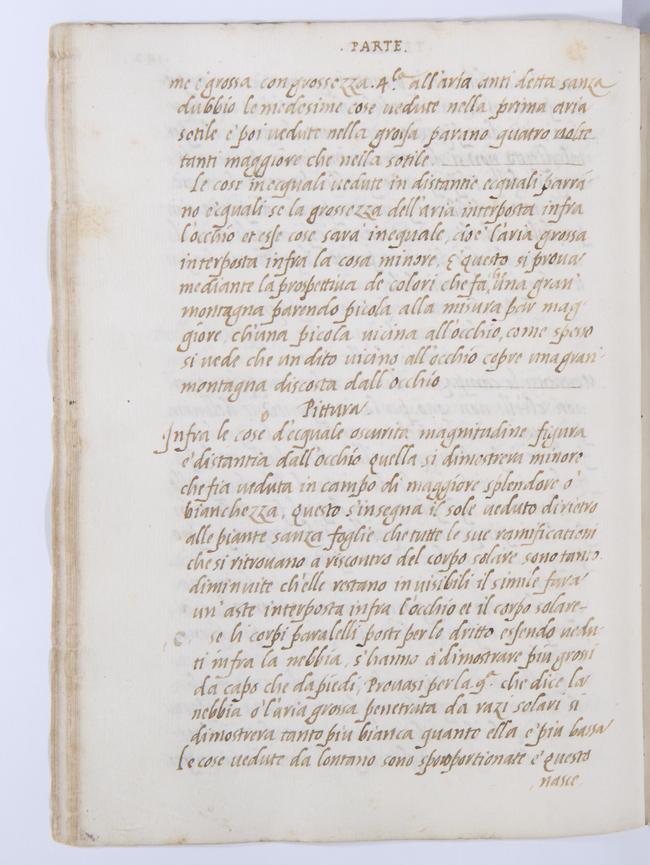 . PARTE.
me e' grossa con grossezza .4.la all'aria anti detta sanza
dubbio le medesime cose uedute nella prima aria
sotile e' poi uedute nella grossa parano quatro uolte
tanti maggiore che nella sotile.
Le cose inecquali uedute in distantie ecquali parrá
no ecquali se la grossezza dell'aria interposta infra
l'occhio et esse cose sara inequale, cioe' l'aria grossa
interposta infra la cosa minore, E questo si proua
mediante la prospettiua de colori che fa, ch' una gran
montagna parendo picola alla misura par mag
giore, ch'una picola uicina all'occhio, come spesso
si uede che un dito uicino all'occhio copre una gran
montagna discosta dall'occhio
Pittura
Infra le cose d'ecquale oscurita magnitudine, figura
e' distantia dall'occhio quella si dimostrera minore
che fia ueduta in campo di maggiore splendore o'
bianchezza, questo s'insegna il sole ueduto dirietro
alle piante sanza foglie, che tutte le sue ramificationi
che si ritrouano a riscontro del corpo solare sono tanto
diminuite ch'elle restano inuisibili il simile fara
un'aste interposta infra l'occhio et il corpo solare-
C. se li corpi paralelli posti per lo dritto essendo uedu
ti infra la nebbia, s'hanno à dimostrare piu grossi
da capo che da piedi, Prouasi per la .9.a che dice la
nebbia o' l'aria grossa penetrata da razi solari si
dimostrera tanto piu bianca quante ella e' piu bassa
le cose uedute da lontano sono sproportionate e' questo
nasce